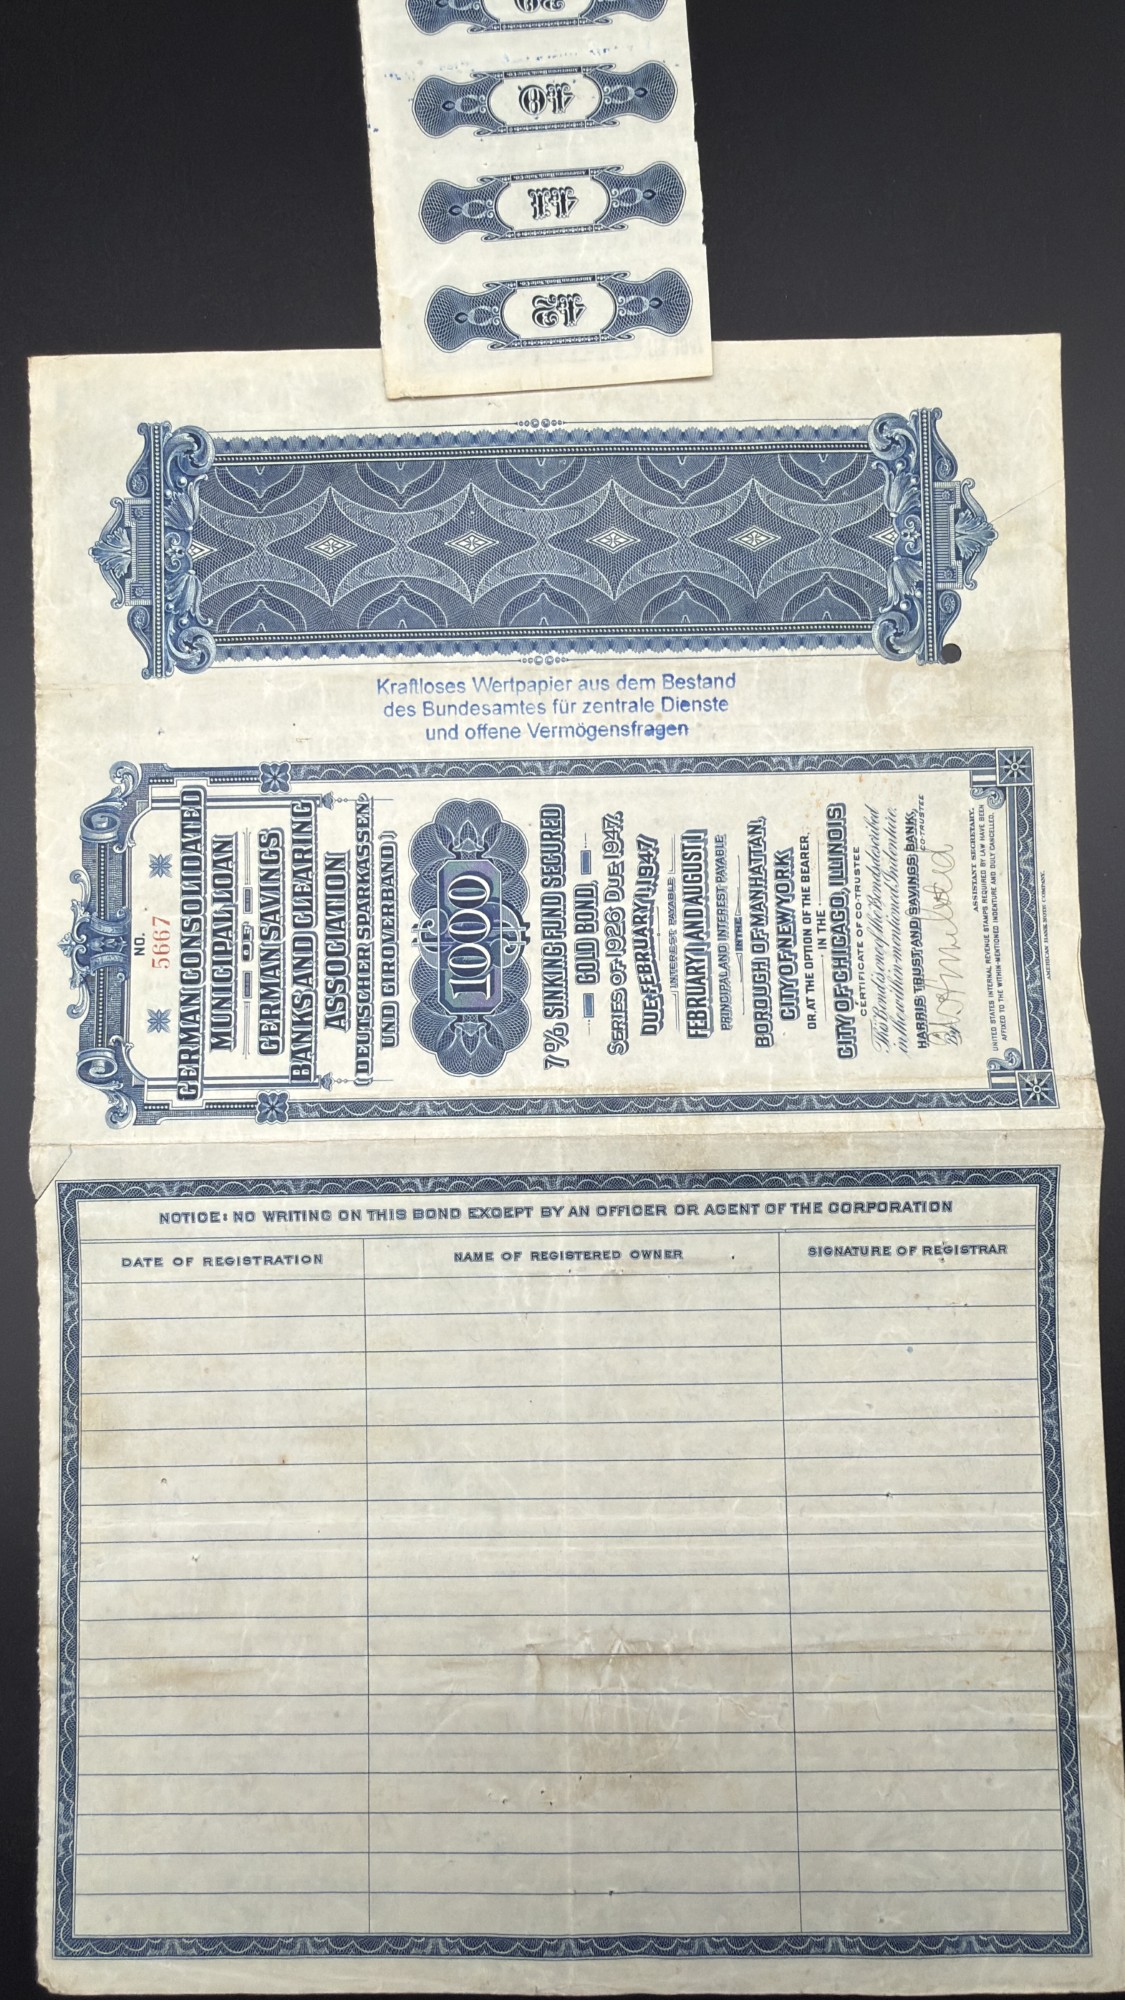 39
40
41
42
AMERICAN BANK NOTE CO.
Kraftloses Wertpapier aus dem Bestand
des Bundesamtes für zentrale Dienste
und offene Vermögensfragen
NO.
5667
GERMAN CONSOLIDATED
MUNICIPAL LOAN
OF
GERMAN SAVINGS
BANKS AND CLEARING
ASSOCIATION
(DEUTSCHER SPARKASSEN-
UND GIROVERBAND)
$1000$
7% SINKING FUND SECURED
GOLD BOND,
SERIES OF 1926 DUE 1947.
DUE FEBRUARY 1, 1947
INTEREST PAYABLE
FEBRUARY 1 AND AUGUST 1
PRINCIPAL AND INTEREST PAYABLE
IN THE
BOROUGH OF MANHATTAN,
CITY OF NEW YORK
OR, AT THE OPTION OF THE BEARER,
IN THE
CITY OF CHICAGO, ILLINOIS
CERTIFICATE OF CO-TRUSTEE
This Bond is one of the Bonds described
in the within-mentioned Indenture.
HARRIS TRUST AND SAVINGS BANK,
CO-TRUSTEE
By
ASSISTANT SECRETARY.
UNITED STATES INTERNAL REVENUE STAMPS REQUIRED BY LAW HAVE BEEN
AFFIXED TO THE WITHIN-MENTIONED INDENTURE AND DULY CANCELLED.
AMERICAN BANK NOTE COMPANY.
NOTICE: NO WRITING ON THIS BOND EXCEPT BY AN OFFICER OR AGENT OF THE CORPORATION
DATE OF REGISTRATION
NAME OF REGISTERED OWNER
SIGNATURE OF REGISTRAR